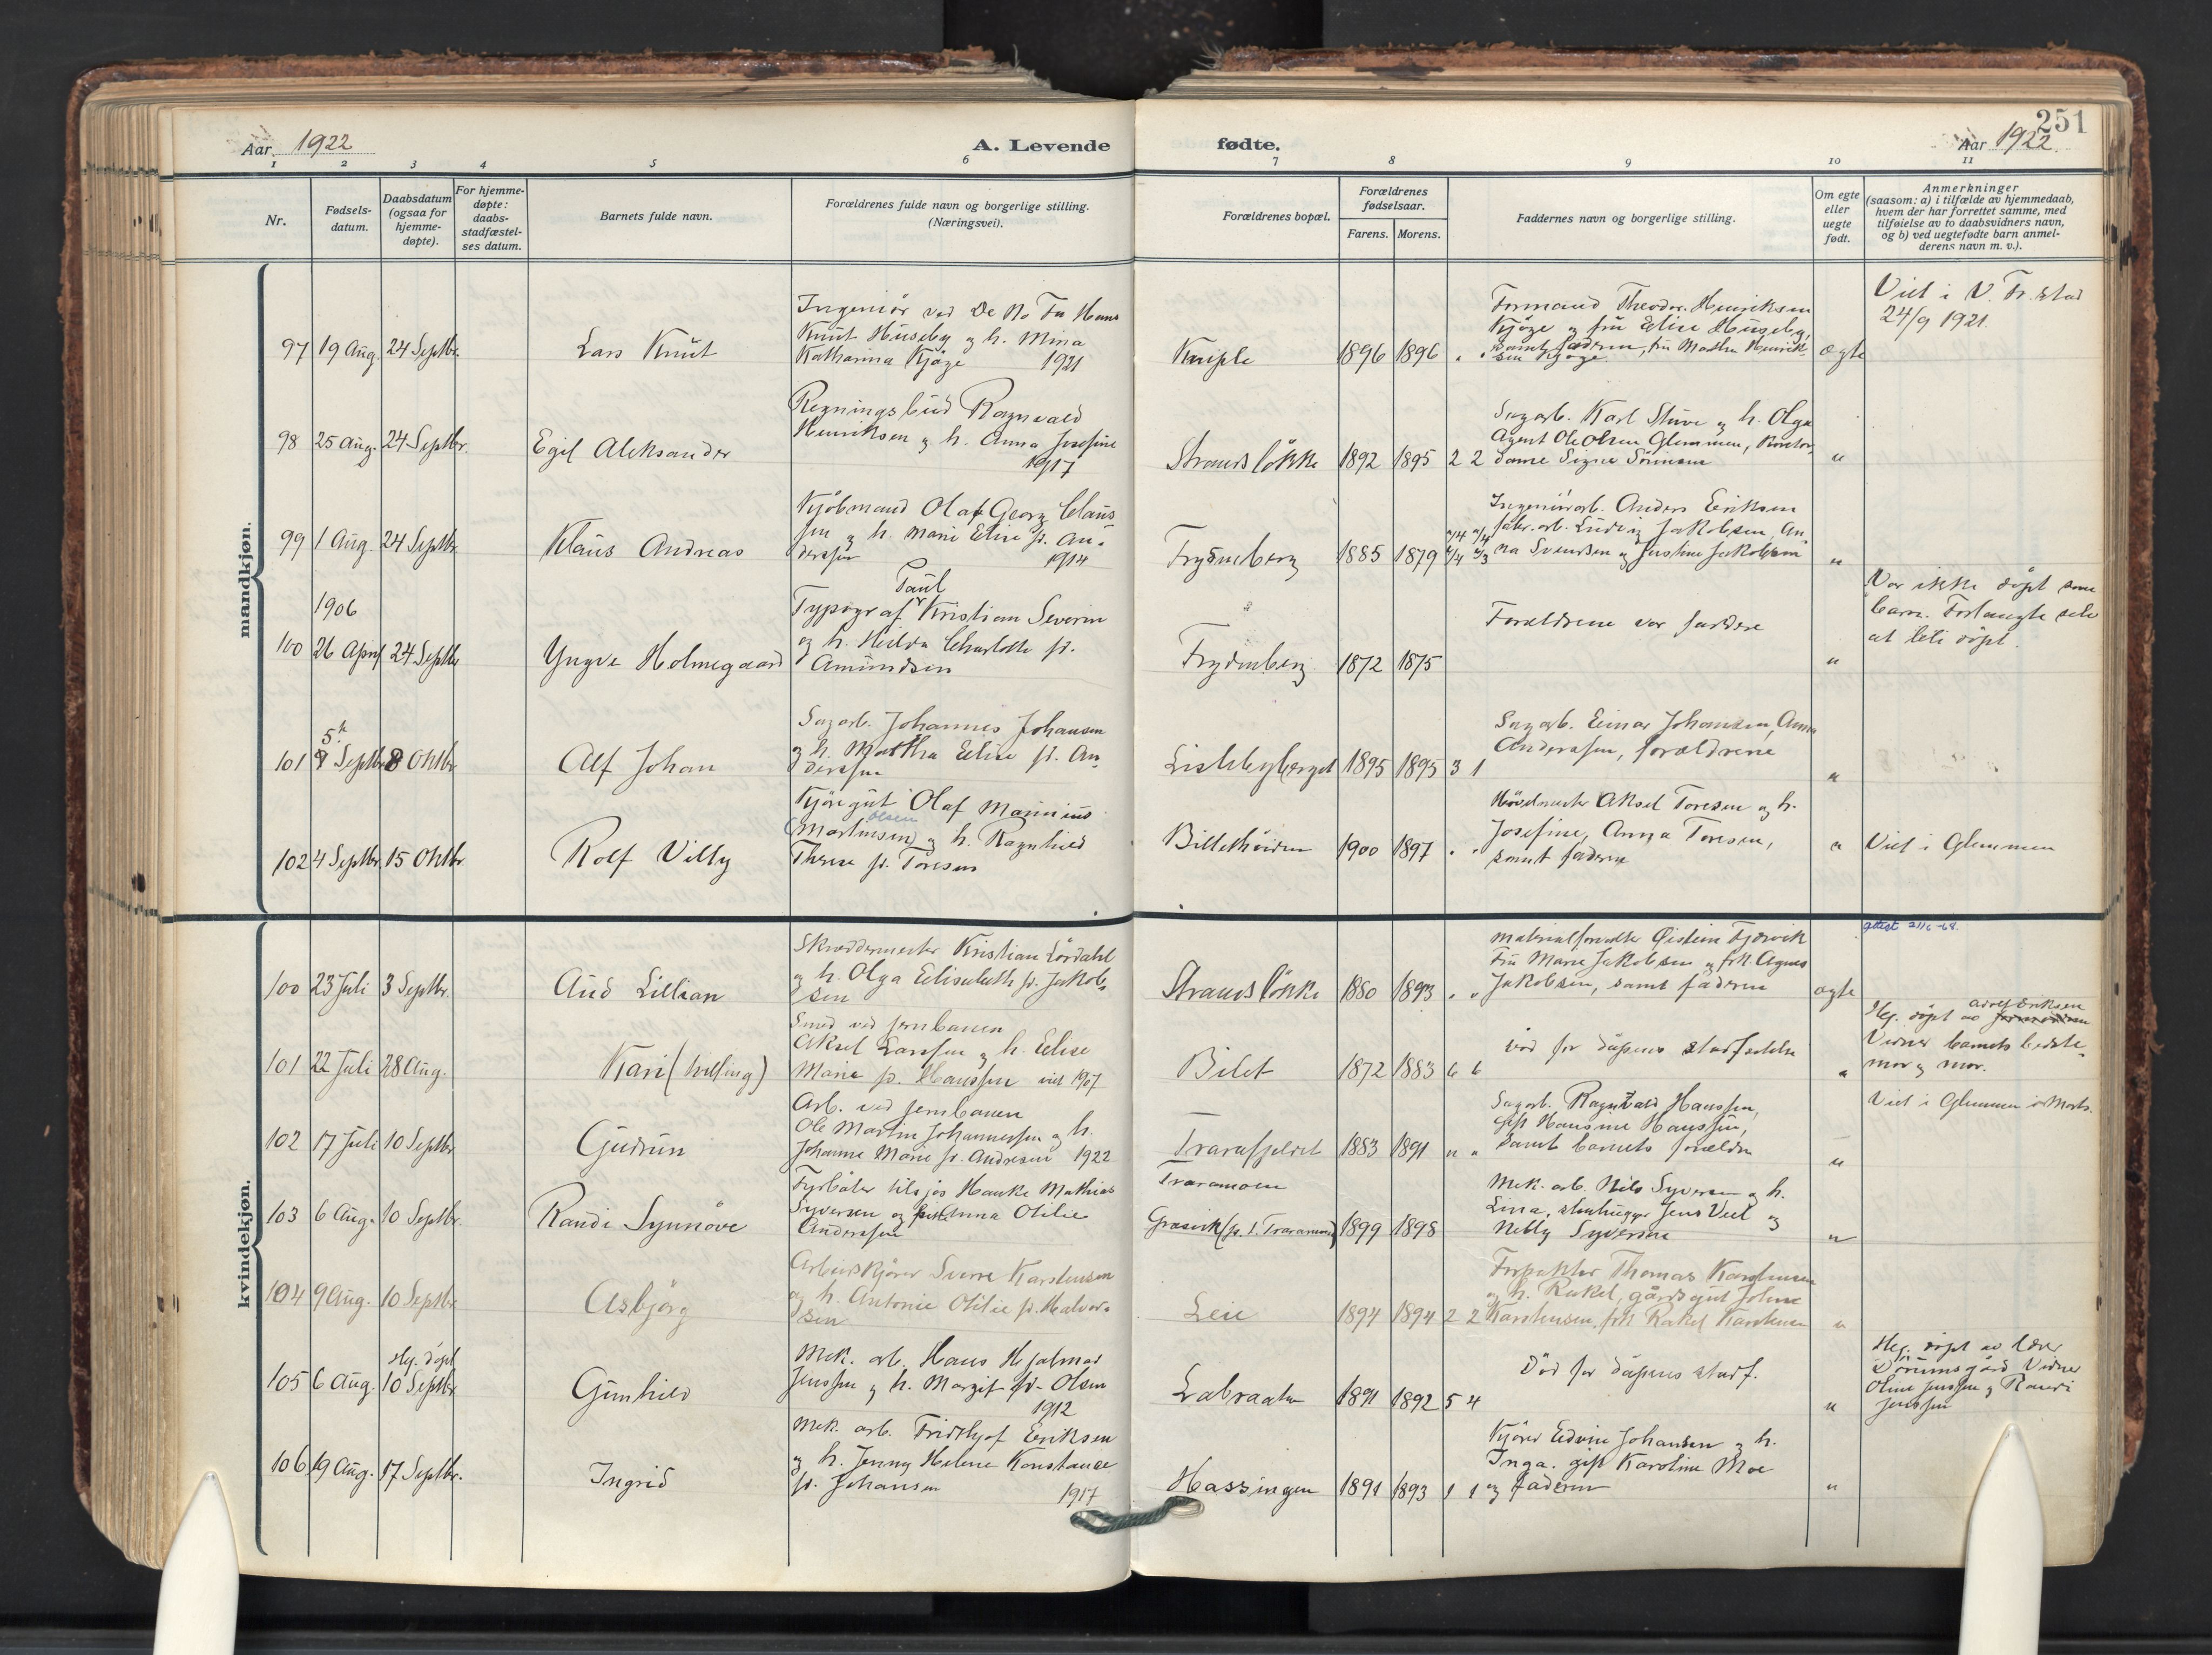 251
Aar 1922
A. Levende fødte.
Aar 1922
1 2 3 4 5 6 7 8 9 10 11
Nr.
Fødsels-
datum.
Daabsdatum
(ogsaa for
hjemme-
døpte).
For hjemme-
døpte:
daabs-
stadfæstel-
ses datum.
Barnets fulde navn.
Forældrenes fulde navn og borgerlige stilling.
(Næringsvei).
Forældrenes bopæl.
Forældrenes
fødselsaar.
Farens. Morens.
Faddernes navn og borgerlige stilling.
Om egte
eller
uegte
født.
Anmerkninger
(saasom: a) i tilfælde av hjemmedaab,
hvem der har forrettet samme, med
tilføielse av to daabsvidners navn,
og b) ved uegtefødte barn anmel-
derens navn m. v.).
mandkjøn.
97 19 Aug. 24 Septbr.
Lars Knut
Ingeniör ved De No Fa Hans
Knut Huseby og h. Mina
Katharina Kjöge 1921
Kniple 1896 1896 " "
Formand Theodor Henriksen
Kjöge og fru Elise Huseby,
samt faderen, fru Martha Henrik-
sen Kjöge
ægte
Viet i V. Fr.stad
24/9 1921.
98 25 Aug. 24 Septbr.
Egil Aleksander
Regningsbud Ragnvald
Henriksen og h. Anna Josefine
1917
Strandslökke 1892 1895 2 2
Sagarb. Karl Stuve og h. Olga
Agent Ole Olsen Glemmen,
dame Signe Sörensen
"
99 1 Aug. 24 Septbr.
Klaus Andreas
Kjöbmand Olaf Georg Claus-
sen og h. Marie Elise f. An-
derssen 1914
Frydenberg 1885 1879
Ingeniörarb. Anders Eriksen
fabr. arb. Ludvig Jakobsen, An-
na Svendsen og Justine Jakobsen
"
1906
100 26 April 24 Septbr
Yngve Holmegaard
Paul
Typograf Kristian Severin
og h. Hilda Charlotte f.
Amundsen
Frydenberg 1872 1875
Forældrene var faddere
"
Var ikke döpt som
barn. Forlangte selv
at bli döpt.
5
101 9 Septbr 8 Oktbr
Alf Johan
Sagarb. Johannes Johansen
og h. Martha Elise f. An-
derssen
Lislebyberget 1895 1895 3 1
Sagarb. Einar Johansen, Anna
Anderssen, forældrene
"
102 4 Septbr. 15 Oktbr
Rolf Villy
Kjöregut Olaf Marinius
olsen
(Martinsen) og h. Ragnhild
Therese f. Toresen
Billethöiden 1900 1897 " "
Hövelmester Aksel Toresen og h.
Josefine, Anna Toresen,
samt faderen
"
Viet i Glemmen
kvindekjøn.
100 23 Juli 3 Septbr.
Aud Lillian
Skræddermester Kristian Lördahl
og h. Olga Elisabeth f. Jakob-
sen
Strandslökke 1880 1893 " "
Materialforvalter Øistein Fjærvik
Fru Marie Jakobsen og frk. Agnes
Jakobsen, samt faderen
ægte
101 22 Juli 28 Aug.
Kari (tvilling)
Smed ved jernbanen
Aksel Larssen og h. Elise
Marie f. Hanssen viet 1907
Bilet 1872 1883 6 6
död för dåpens stadfæstelse
"
Adolf Eriksen
Hj. döpt av
Vidner barnets bedste-
mor og mor.
102 17 Juli 10 Septbr
Gudrun
Arb. ved jernbanen
Ole Martin Johannessen og h.
Johanne Marie f. Andresen 1922
Trarafjeldet 1883 1891 " "
Sagarb. Ragnvald Hanssen,
gift Hansine Hanssen,
samt barnets forældre
"
Viet i Glemmen i Marts.
103 6 Aug. 10 Septbr.
Randi Synnöve
Fyrböter tilsjös Hauke Mathias
Syversen og Anna Otilie
Anderssen
Traramoen
Græsvik (f. i Traramoen) 1899 1898
Mek. arb. Nils Syversen og h.
Lina, stenhugger Jens Viel og
Nelly Syversen
"
104 9 Aug. 10 Septbr
Asbjörg
Arbeidskjörer Sverre Karstensen
og h. Antonie Otilie f. Halvor-
sen
Leie 1894 1894 2 2
Forpakter Thomas Karstensen
og h. Rakel, gårdsgut Johne
Karstensen, frk Rakel Karstensen
"
Hj. döpt
105 6 Aug. 10 Septbr
Gunhild
Mek. arb. Hans Hjalmar
Jenssen og h. Margit f. Olsen
1912
Labraaten 1891 1892 5 4
Död för dåpens stadf.
"
Hj. döpt av lærer
Dörumsgård Vidner
Oline Jenssen og Randi
Jenssen
106 19 Aug. 17 Septbr.
Ingrid
Mek. arb. Fridthjof Eriksen
og h. Jenny Helene Konstanse
f. Johansen 1917
Hassingen 1891 1893 1 1
Kjörer Edvin Johansen og h.
Inga. gift Karoline Moe
og faderen
"